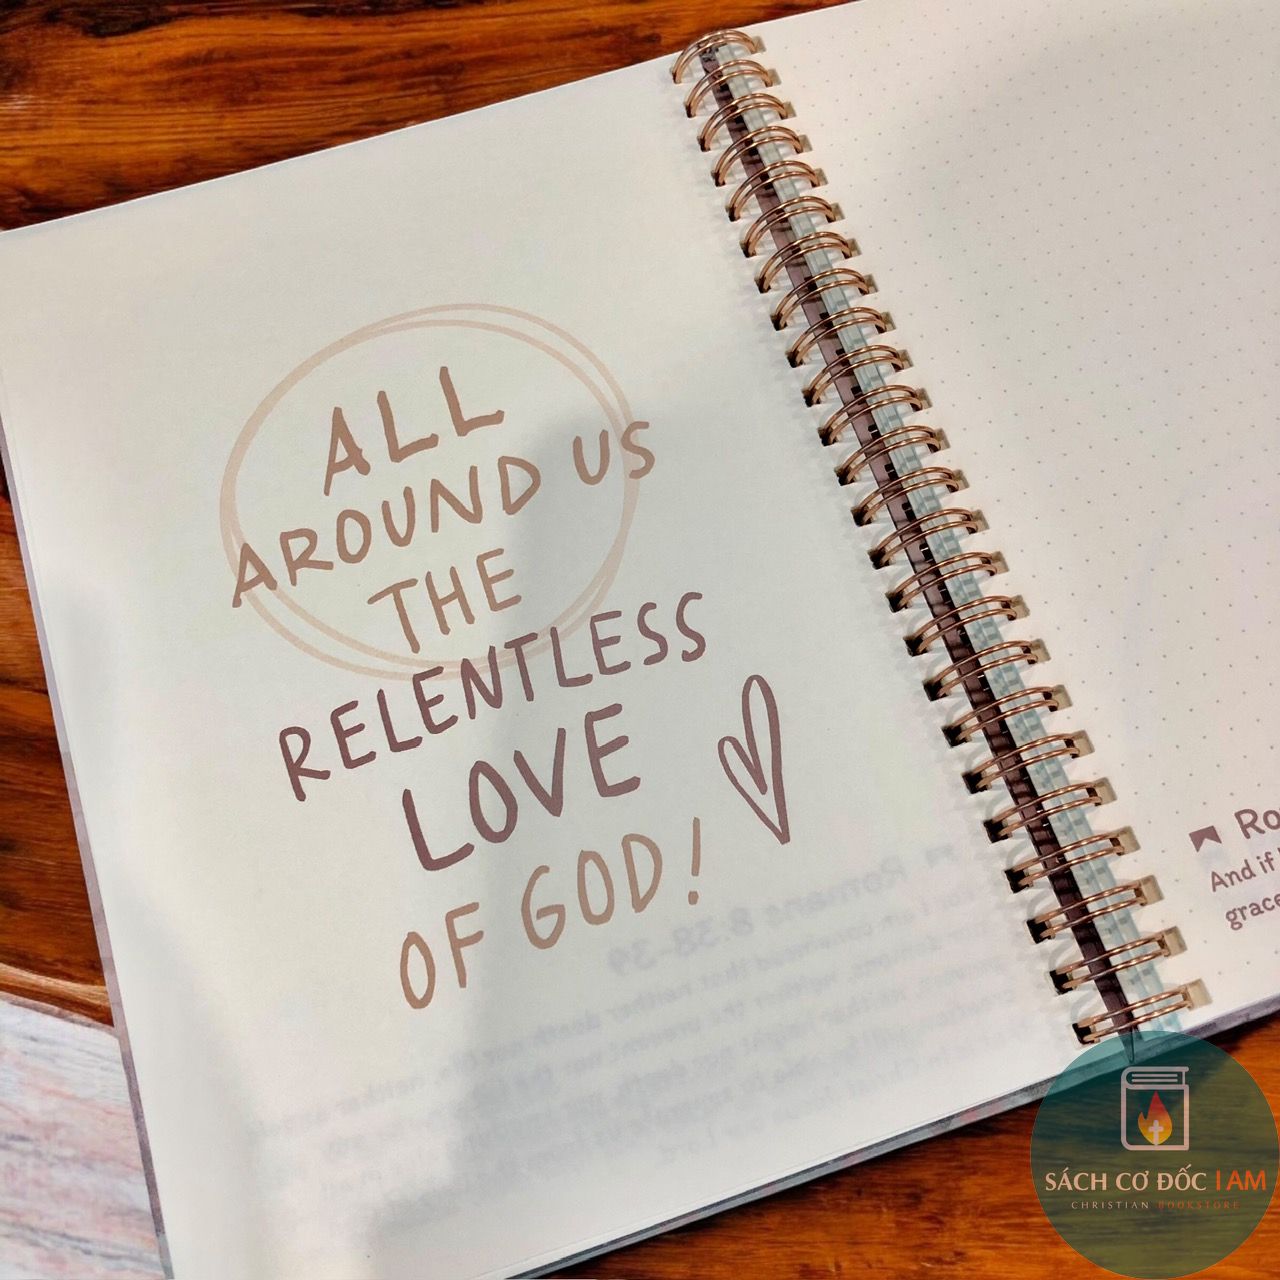 ALL
AROUND US
THE
RELENTLESS
LOVE
OF GOD!
Romans 8:38-39
Ro
And if
grace
SÁCH CƠ ĐỐC I AM
CHRISTIAN BOOKSTORE